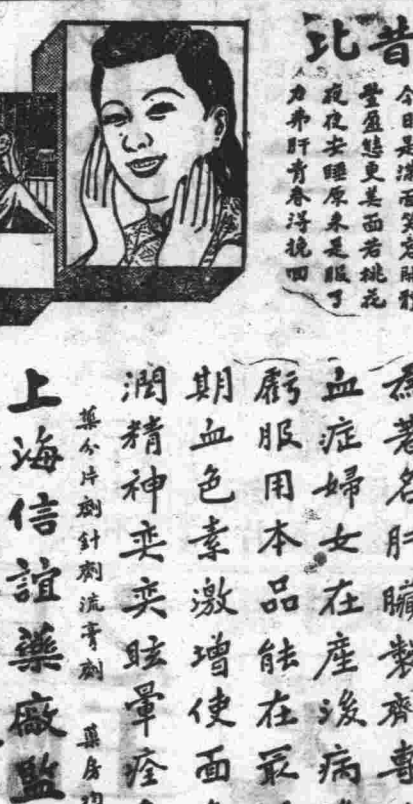 昔
比
今日是滿面笑容開
豐盈態更美面若桃花
夜夜安睡原來是服了
力弗肝青春得挽回
為著名肝臟製劑專
血症婦女在產後病
虧服用本品能在最
期血色素激增使面
潤精神奕奕眩暈痊
藥分片劑針劑流膏劑 藥房
上海信誼藥廠監